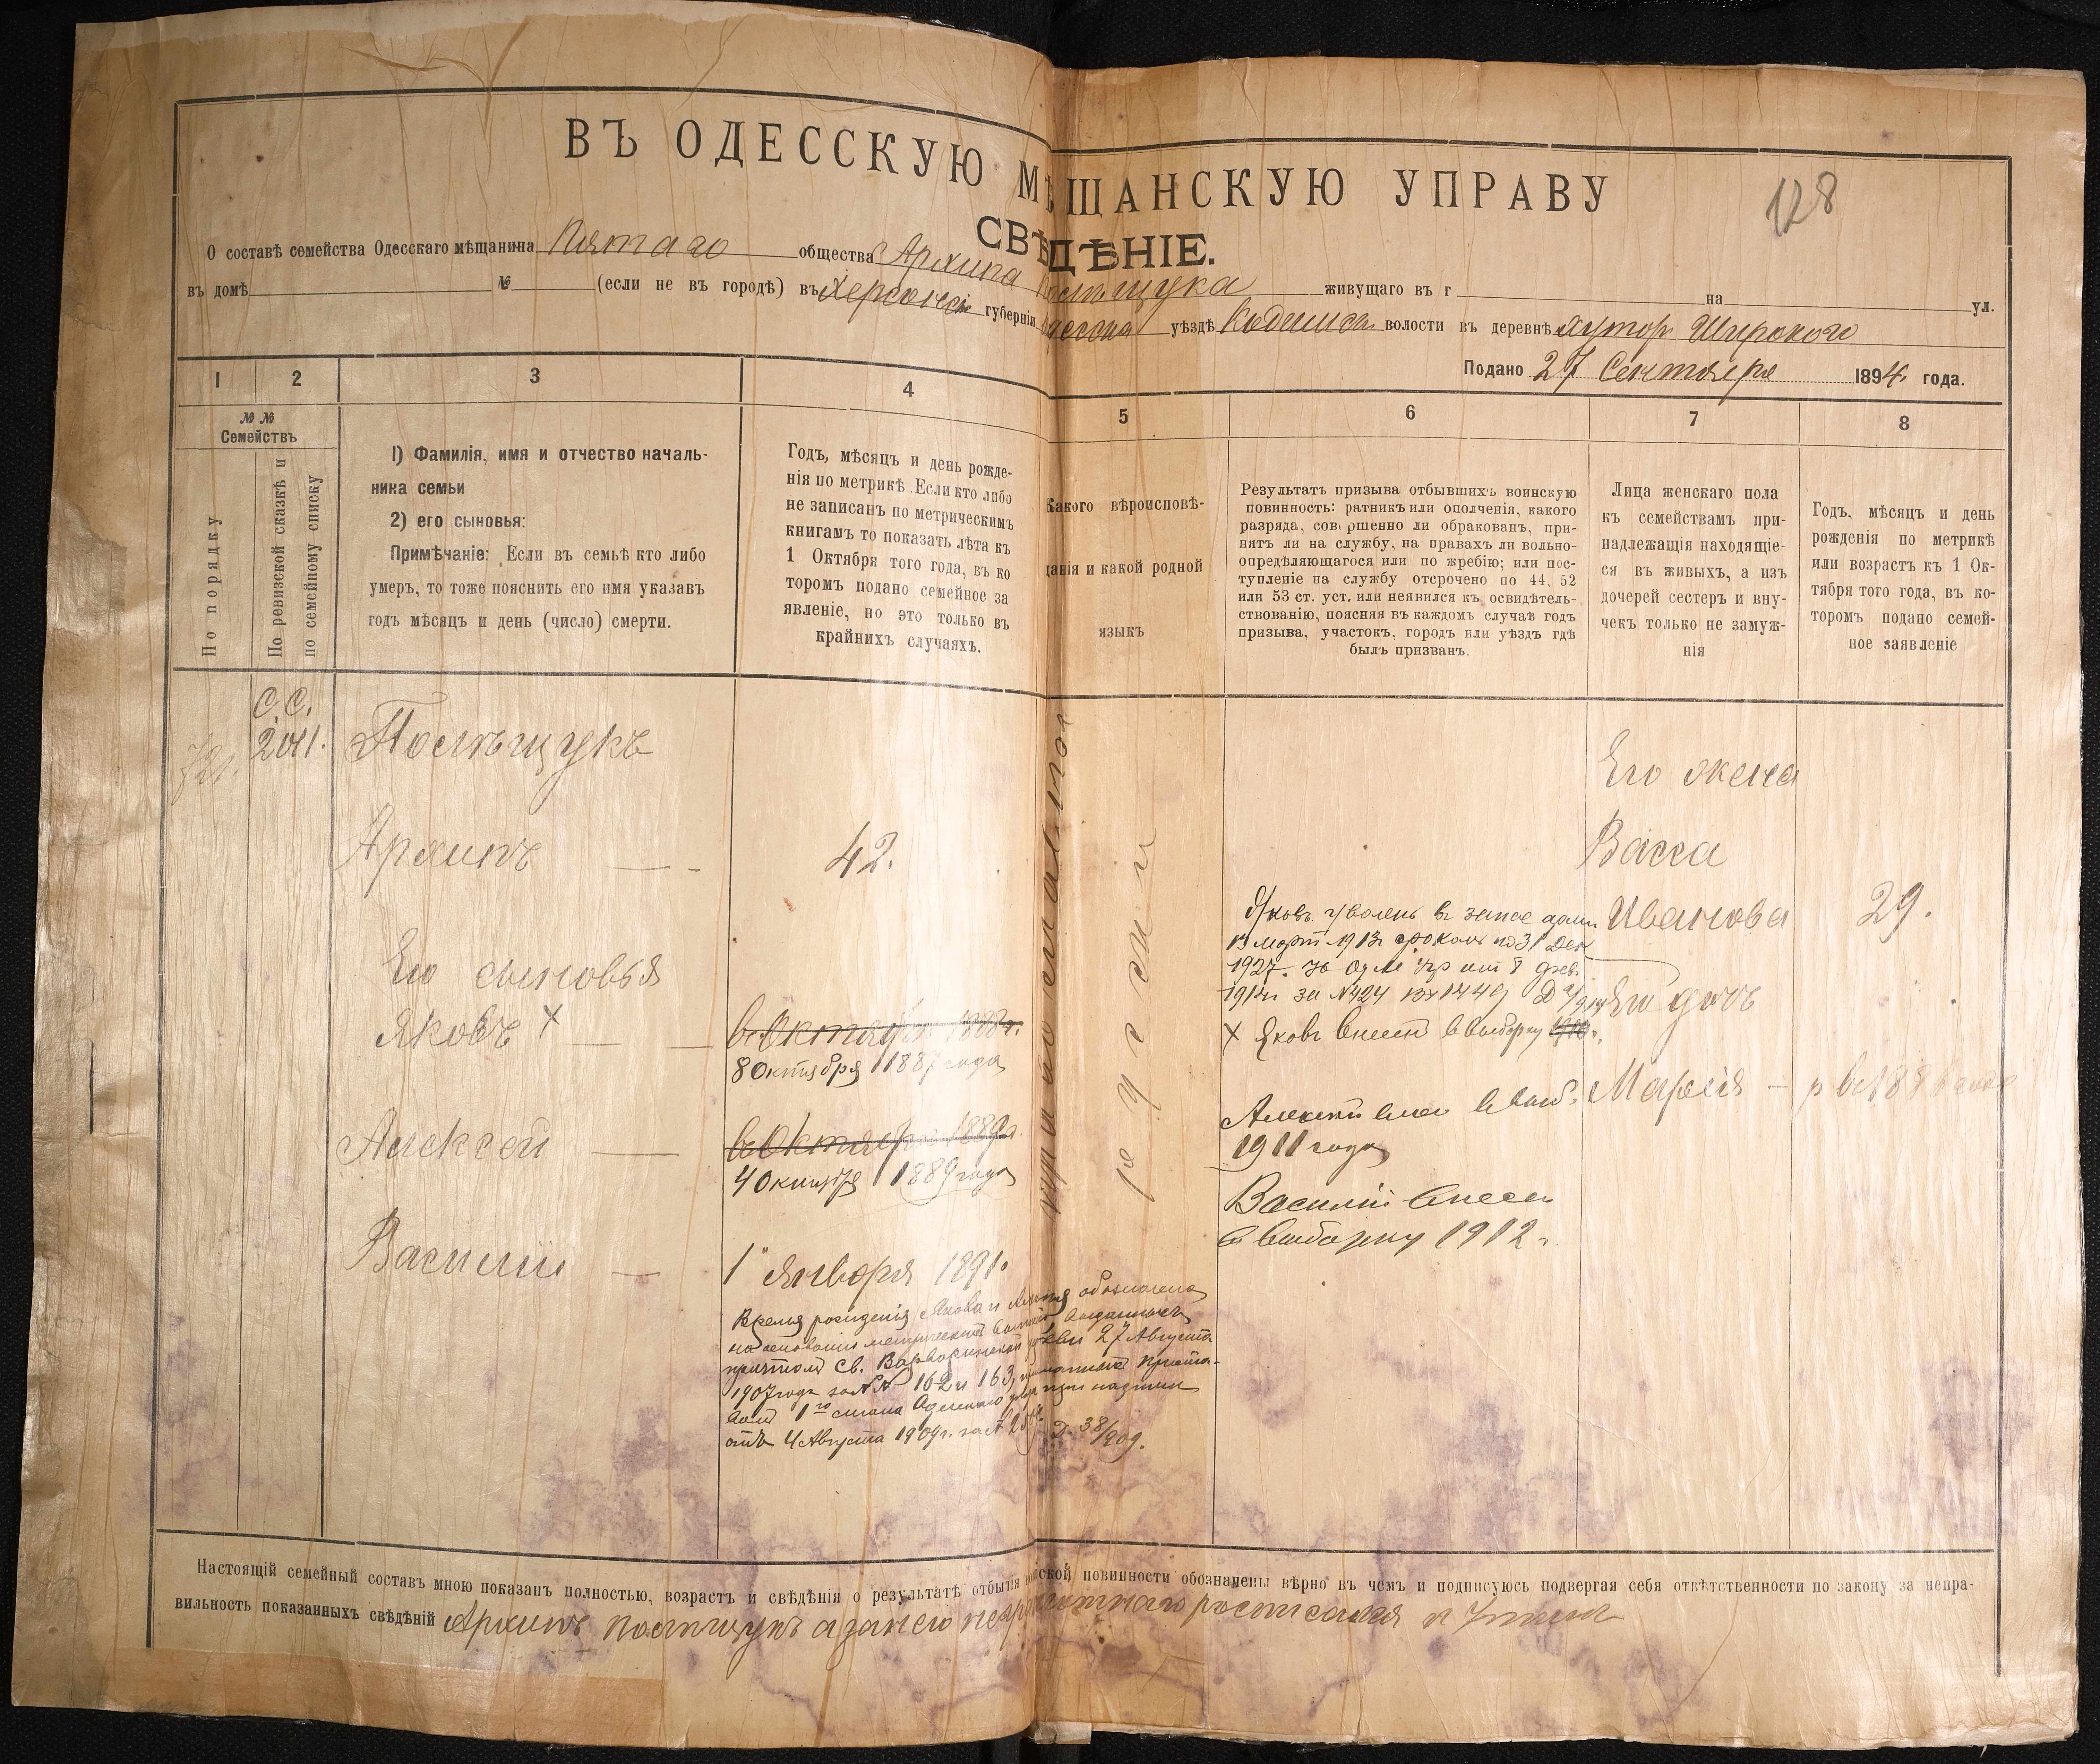 ВЪ ОДЕССКУЮ МѢЩАНСКУЮ УПРАВУ
128
СВѢДѢНІЕ.
О составѣ семейства Одесскаго мѣщанина Пятаго общества Архипа Полѣщука живущаго въ г на ул.
въ домѣ № (если не въ городѣ) въ Херсонской губерніи уѣздѣ волости въ деревнѣ хуторъ Широкого
Подано 27 Сентября 1894 года.
1 2 3 4 5 6 7 8
№ №
Семействъ
По порядку
По ревизской сказкѣ и
по семейному списку
1) Фамилія, имя и отчество началь-
ника семьи
2) его сыновья:
Примѣчаніе: Если въ семьѣ кто либо
умеръ, то тоже пояснить его имя указавъ
годъ мѣсяцъ и день (число) смерти.
Годъ, мѣсяцъ и день рожде-
нія по метрикѣ. Если кто либо
не записанъ по метрическимъ
книгамъ то показать лѣта къ
1 Октября того года, въ ко
торомъ подано семейное за
явленіе, но это только въ
крайнихъ случаяхъ.
Какого вѣроисповѣ-
данія и какой родной
языкъ
Результатъ призыва отбывшихъ воинскую
повинность: ратникъ или ополченія, какого
разряда, совершенно ли обракованъ, при-
нятъ ли на службу, на правахъ ли вольно-
опредѣляющагося или по жребію; или пос-
тупленіе на службу отсрочено по 44, 52
или 53 ст. уст. или неявился къ освидѣтель-
ствованію, поясняя въ каждомъ случаѣ годъ
призыва, участокъ, городъ или уѣздъ гдѣ
былъ призванъ.
Лица женскаго пола
къ семействамъ при-
надлежащія находящіе-
ся въ живыхъ, а изъ
дочерей сестеръ и вну-
чекъ только не замуж-
нія
Годъ, мѣсяцъ и день
рожденія по метрикѣ
или возрастъ къ 1 Ок-
тября того года, въ ко-
торомъ подано семей-
ное заявленіе
С.С.
2011.
Полѣщукъ
Архипъ — 42.
Его сыновья
Яковъ × — въ Октябрѣ 1888г.
8 Октября 1887 года
Алексей — въ Октябрѣ 1889г.
4 Октября 1889 года
Василій — 1 Января 1891.
Время рожденія Якова и Алексѣя обозначено
на основаніи метрическихъ выписей выданныхъ
причтомъ св. Варваринской церкви 27 Августа
1907 года за №№ 162 и 163,
1го стана Одесскаго уѣзда при надписи
отъ 4 Августа 1909г. за № Д. 38/909.
православное
русскій
Яковъ уволенъ въ запас арміи
13 Март 1913г срокомъ по 31 Дек
1927.
1914г за №424 вх 1449
× Яковъ внесен въ выборку 1910г.
Алексей внес в выб.
1911 года
Василій внесен
в выборку 1912г.
Его жена
Васса
Иванова 29.
Его дочь
Марія — р въ 1886 годе
Настоящій семейный составъ мною показанъ полностью, возрастъ и свѣдѣнія о результатѣ отбытія воинской повинности обозначены вѣрно въ чемъ и подписуюсь подвергая себя отвѣтственности по закону за непра-
вильность показанныхъ свѣдѣній Архипъ Полѣщукъ а за него неграмотнаго росписался